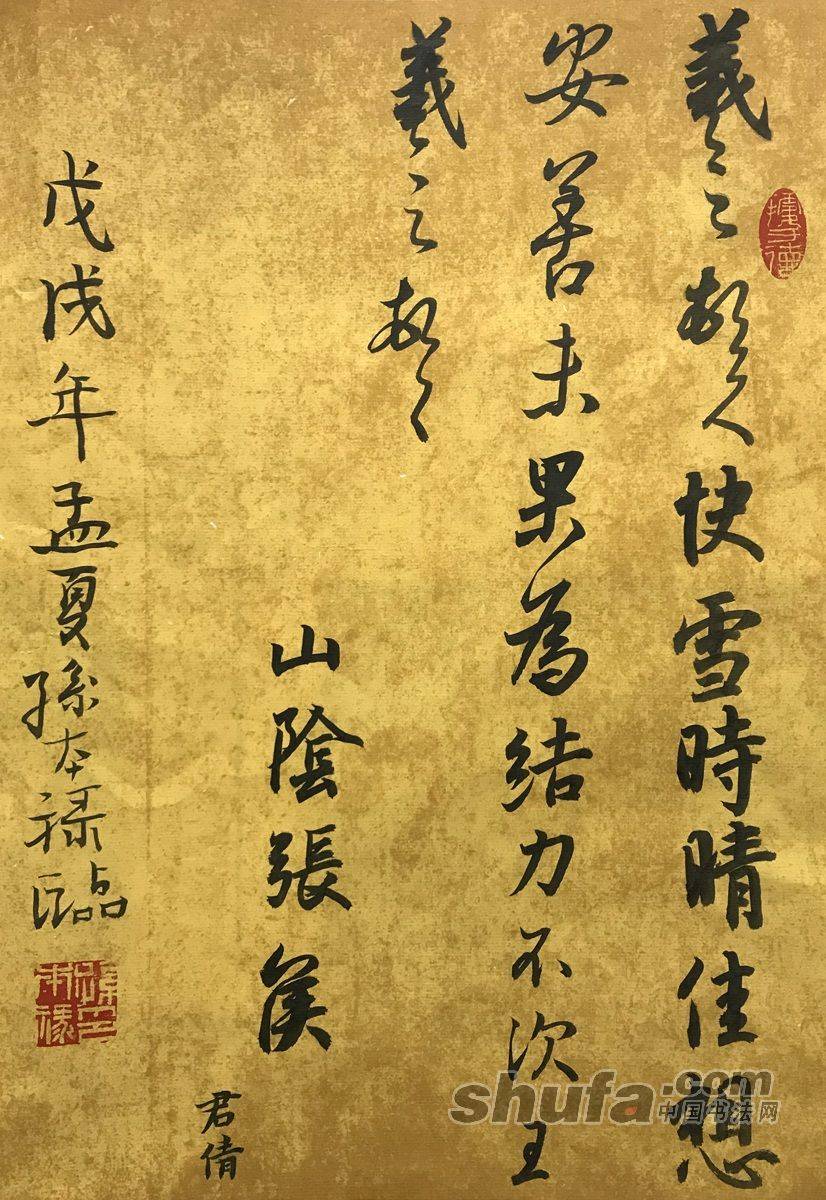 羲之頓首快雪時晴佳想
安善未果為結力不次王
羲之頓首
山陰張侯
君倩
戊戌年孟夏孫本祿臨
據于德
shufa.com
中国书法网